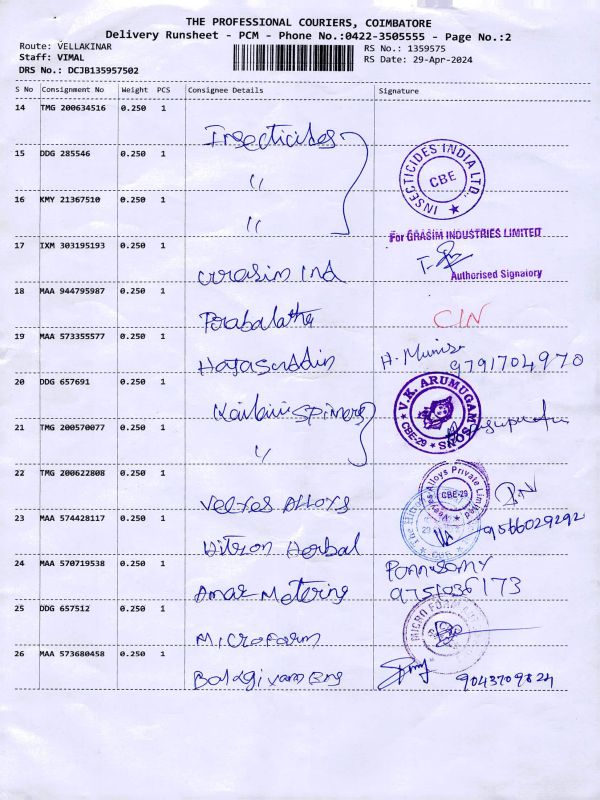 THE PROFESSIONAL COURIERS, COIMBATORE
Delivery Runsheet - PCM - Phone No.:0422-3505555 - Page No.:2
Route: VELLAKINAR RS No.: 1359575
Staff: VIMAL RS Date: 29-Apr-2024
DRS No.: DCJB135957502
S No Consignment No Weight PCS Consignee Details Signature
14 TMG 200634516 0.250 1
Insecticides
15 DDG 285546 0.250 1
INSECTICIDES INDIA LTD.
CBE
"
16 KMY 21367510 0.250 1
"
For GRASIM INDUSTRIES LIMITED
17 IXM 303195193 0.250 1
Grasim Ind
Authorised Signatory
18 MAA 944795987 0.250 1
Prabalatha CIN
19 MAA 573355577 0.250 1
H. Munisa
9791704970
20 DDG 657691 0.250 1
V.K. ARUMUGAM SONS
CBE-29
Spinners
21 TMG 200570077 0.250 1
"
22 TMG 200622808 0.250 1
Alloys Private Limited
CBE-29
Alloys
23 MAA 574428117 0.250 1
9566029292
Hitron Herbal
24 MAA 570719538 0.250 1
Ponnusamy
Amar Metering 9751036173
25 DDG 657512 0.250 1
MICRO FORM
Microfarm
26 MAA 573680458 0.250 1
Eng